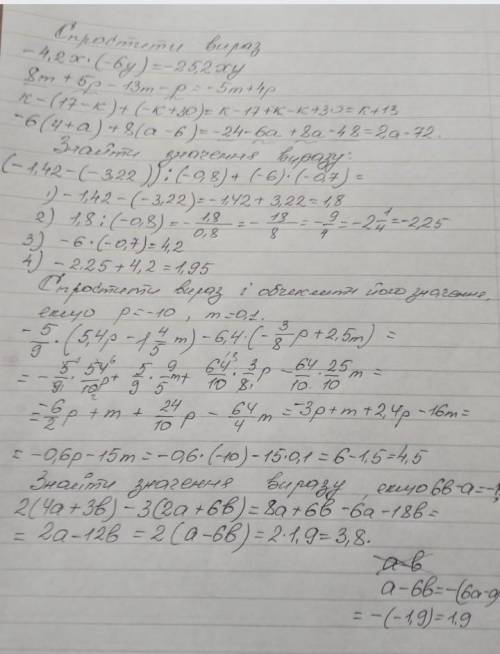 Спростити вираз
-4,2x·(-6y)=-25,2xy
8m+5p-13m-p=-5m+4p
к-(17-к)+(-к+30)=к-17+к-к+30=к+13
-6(4+a)+8(a-6)=-24-6a+8a-48=2a-72.
Знайти значення виразу:
(-1,42-(-3,22)):(-0,8)+(-6)·(-0,7)=
1) -1,42-(-3,22)=-1,42+3,22=1,8
2) 1,8:(-0,8)=-1,8/0,8=-18/8=-9/4=-2 1/4=-2,25
3) -6·(-0,7)=4,2
4) -2,25+4,2=1,95
Спростити вираз і обчислити його значення,
якщо p=-10, m=0,1.
-5/9·(5,4p-1 4/5 m)-6,4·(-3/8 p+2,5m)=
=-5/9·54/10 p+5/9·9/5 m+64/10·3/8 p-64/10·25/10 m=
=-6/2 p+m+24/10 p-64/4 m=-3p+m+2,4p-16m=
=-0,6p-15m=-0,6·(-10)-15·0,1=6-1,5=4,5
Знайти значення виразу, якщо 6в-a=-1,
2(4a+3в)-3(2a+6в)=8a+6в-6a-18в=
=2a-12в=2(a-6в)=2·1,9=3,8.
a-в
a-6в=-(6a-9)
=-(-1,9)=1,9